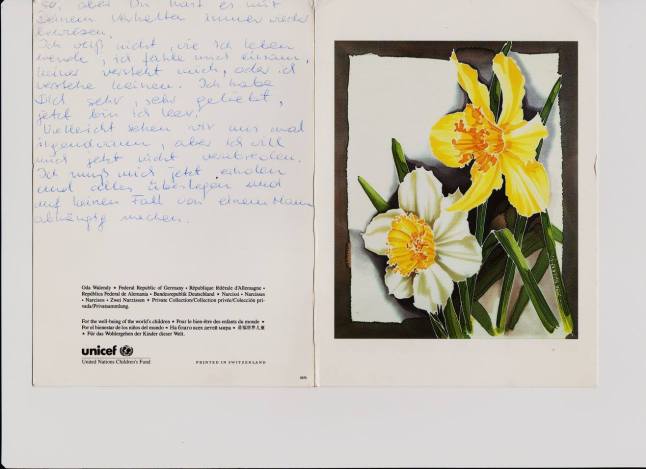 so, aber Du hast es mit
Deinem Verhalten immer wieder
bewiesen.
Ich weiß nicht, wie ich leben
werde, ich fühle mich einsam,
keiner versteht mich, oder ich
verstehe keinen. Ich habe
Dich sehr, sehr geliebt,
jetzt bin ich leer.
Vielleicht sehen wir uns mal
irgendwann, aber ich will
mich jetzt nicht
Ich muß mich jetzt erholen
und alles überlegen und
auf keinen Fall von einem Mann
abhängig machen.
Gda Walendy • Federal Republic of Germany • République fédérale d'Allemagne •
República Federal de Alemania • Bundesrepublik Deutschland • Narcissi • Narcisses
• Narcisos • Zwei Narzissen • Private Collection/Collection privée/Colección pri-
vada/Privatsammlung.
For the well-being of the world's children • Pour le bien-être des enfants du monde •
Por el bienestar de los niños del mundo • На благо всех детей мира • 造福世界儿童
• Für das Wohlergehen der Kinder dieser Welt.
unicef
United Nations Children's Fund
PRINTED IN SWITZERLAND